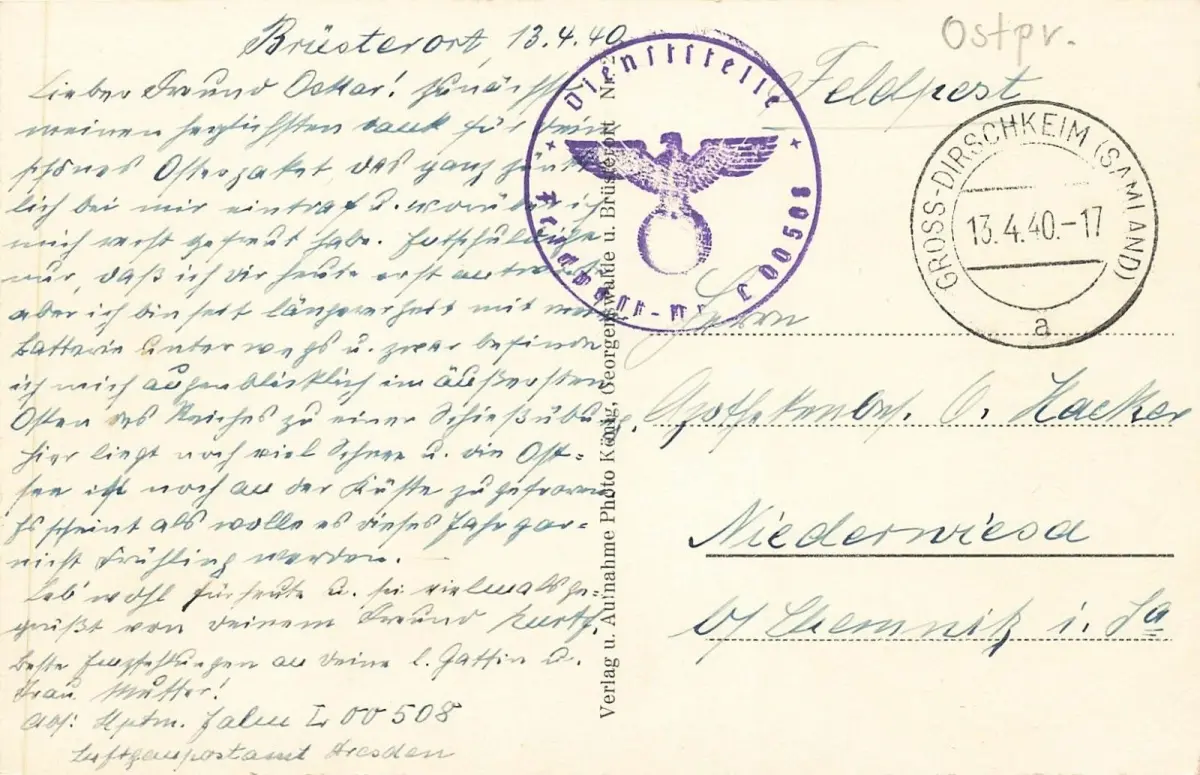 Brüsterort, 13.4.40.
Lieber Freund Oskar! Zunächst
meinen herzlichsten Dank für Dein
schönes Osterpaket, das ganz pünkt
lich bei mir eintraf u. worüber ich
mich recht gefreut habe. Entschuldige
nur, daß ich Dir heute erst antworte
aber ich bin seit längerer Zeit mit meiner
Batterie unterwegs u. zwar befinde
ich mich augenblicklich im äußersten
Osten des Reiches zu einer Schießübung.
Hier liegt noch viel Schnee u. die Ost=
see ist noch an der Küste zugefroren.
Es scheint als wolle es dieses Jahr gar=
nicht Frühling werden.
Leb wohl für heute u. sei vielmals ge=
grüßt von Deinem Freund
Beste Empfehlungen an Deine l. Gattin u.
Frau Mutter!
Abs: Hptm. L 00508
Luftgaupostamt Dresden
Verlag u. Aufnahme Photo König, Georgenswalde u. Brüsterort Nr.
Dienststelle
Feldpost-Nr. L 00508
Ostpr.
Feldpost
GROSS-DIRSCHKEIM (SAMLAND)
13.4.40.-17
a
Herrn
Apothekenbes. O. Hacker
Niederwiesa
b/ Chemnitz i. Sa